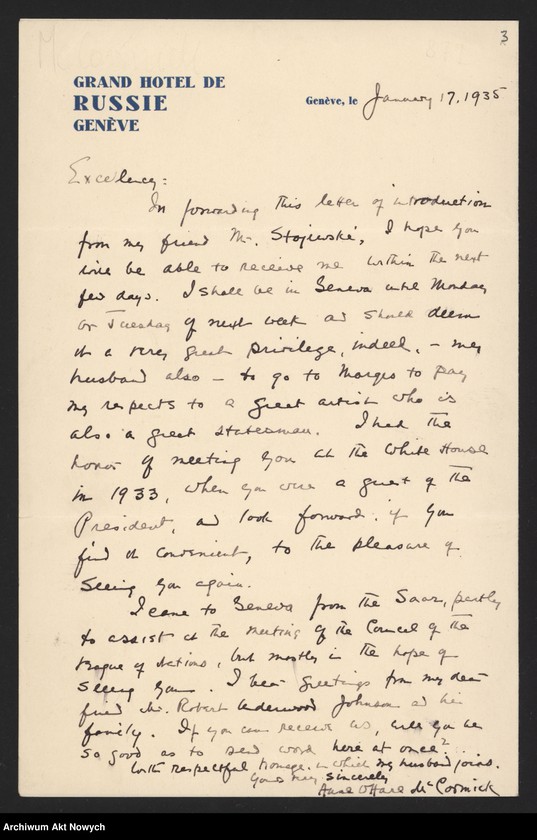 3
GRAND HOTEL DE
RUSSIE
GENÈVE
Genève, le January 17. 1935
Excellency:
In forwarding this letter of introduction
from my friend Mr. Stojowski, I hope you
will be able to receive me within the next
few days. I shall be in Geneva until Monday
or Tuesday of next week and should deem
it a very great privilege, indeed, – my
husband also – to go to Morges to pay
my respects to a great artist who is
also a great statesman. I had the
honor of meeting you at the White House
in 1933, when you were a guest of the
President, and look forward, if you
find it convenient, to the pleasure of
seeing you again.
I came to Geneva from the Saar, partly
to assist at the meeting of the Council of the
League of Nations, but mostly in the hope of
seeing you. I bear greetings from my dear
friend Mr. Robert Underwood Johnson and his
family. If you can receive us, will you be
so good as to send word here at once?
With respectful homage, in which my husband joins.
Yours very sincerely
Anne O'Hare McCormick
Archiwum Akt Nowych